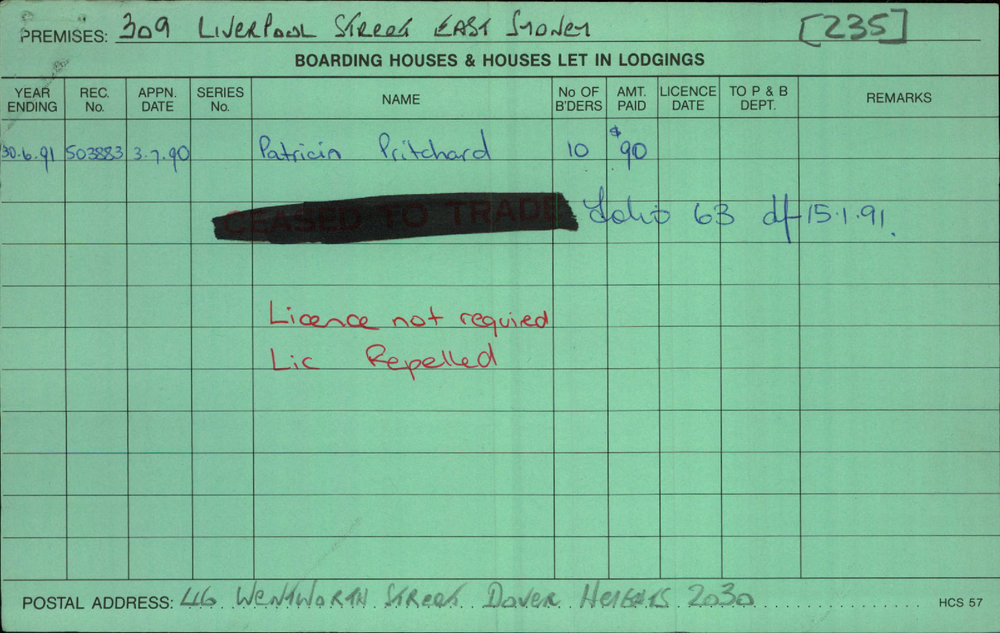 PREMISES: 309 LIVERPOOL STREET EAST SYDNEY [235]
BOARDING HOUSES & HOUSES LET IN LODGINGS
YEAR ENDING REC. No. APPN. DATE SERIES No. NAME No OF B'DERS AMT. PAID LICENCE DATE TO P & B DEPT. REMARKS
30.6.91 503883 3.7.90 Patricia Pritchard 10 $90
CEASED TO TRADE Folio 63 df 15.1.91.
Licence not required
Lic Repelled
POSTAL ADDRESS: 46 WENTWORTH STREET DOVER HEIGHTS 2030 HCS 57